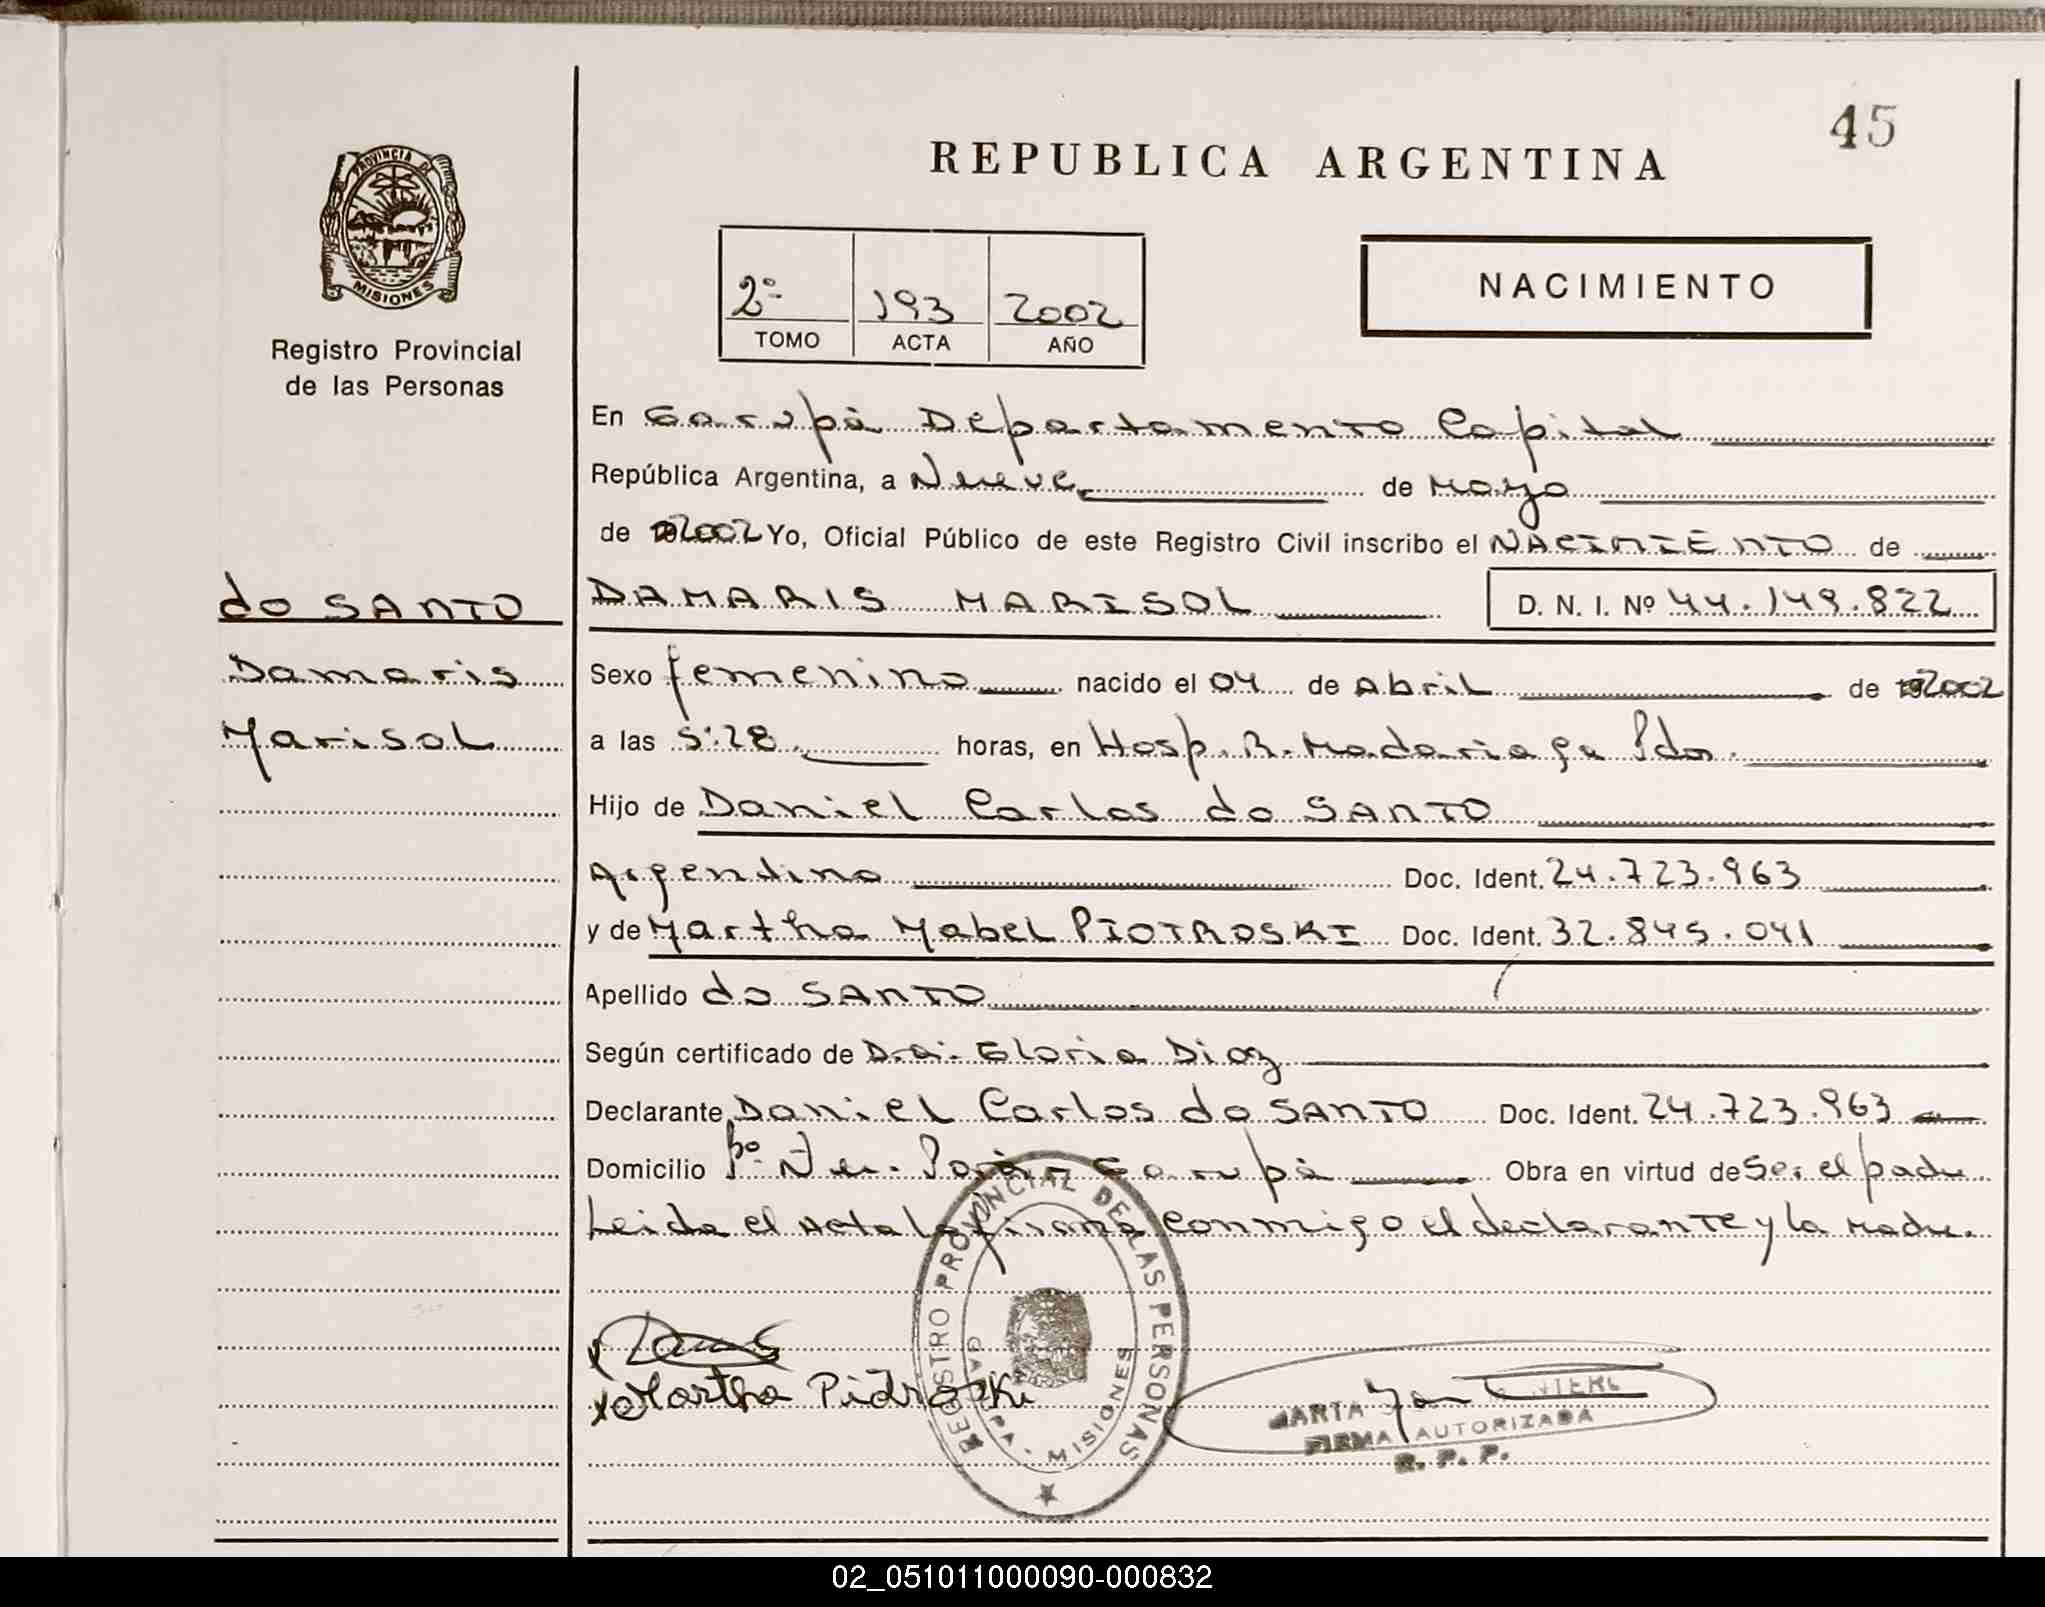 45
REPUBLICA ARGENTINA
PROVINCIA DE
MISIONES
Registro Provincial
de las Personas
2º 193 2002
TOMO ACTA AÑO
NACIMIENTO
En Garupá Departamento Capital
República Argentina, a Nueve de Mayo
de 2002 Yo, Oficial Público de este Registro Civil inscribo el NACIMIENTO de
do SANTO
Damaris
Marisol
DAMARIS MARISOL D. N. I. Nº 44.149.822
Sexo femenino nacido el 04 de Abril de 2002
a las 5:28 horas, en Hosp. R. Madariaga Pdas.
Hijo de Daniel Carlos do SANTO
Argentino Doc. Ident. 24.723.963
y de Martha Mabel PIOTROSKI Doc. Ident. 32.845.041
Apellido do SANTO
Según certificado de Dra. Gloria Diaz
Declarante Daniel Carlos do SANTO Doc. Ident. 24.723.963
Domicilio Bº Ñu Porá Garupá Obra en virtud de Ser el padre
Leida el Acta la firma conmigo el declarante y la Madre.
Martha Piotroski
REGISTRO PROVINCIAL DE LAS PERSONAS
GARUPA - MISIONES
MARTA
FIRMA AUTORIZADA
R. P. P.
02_051011000090-000832